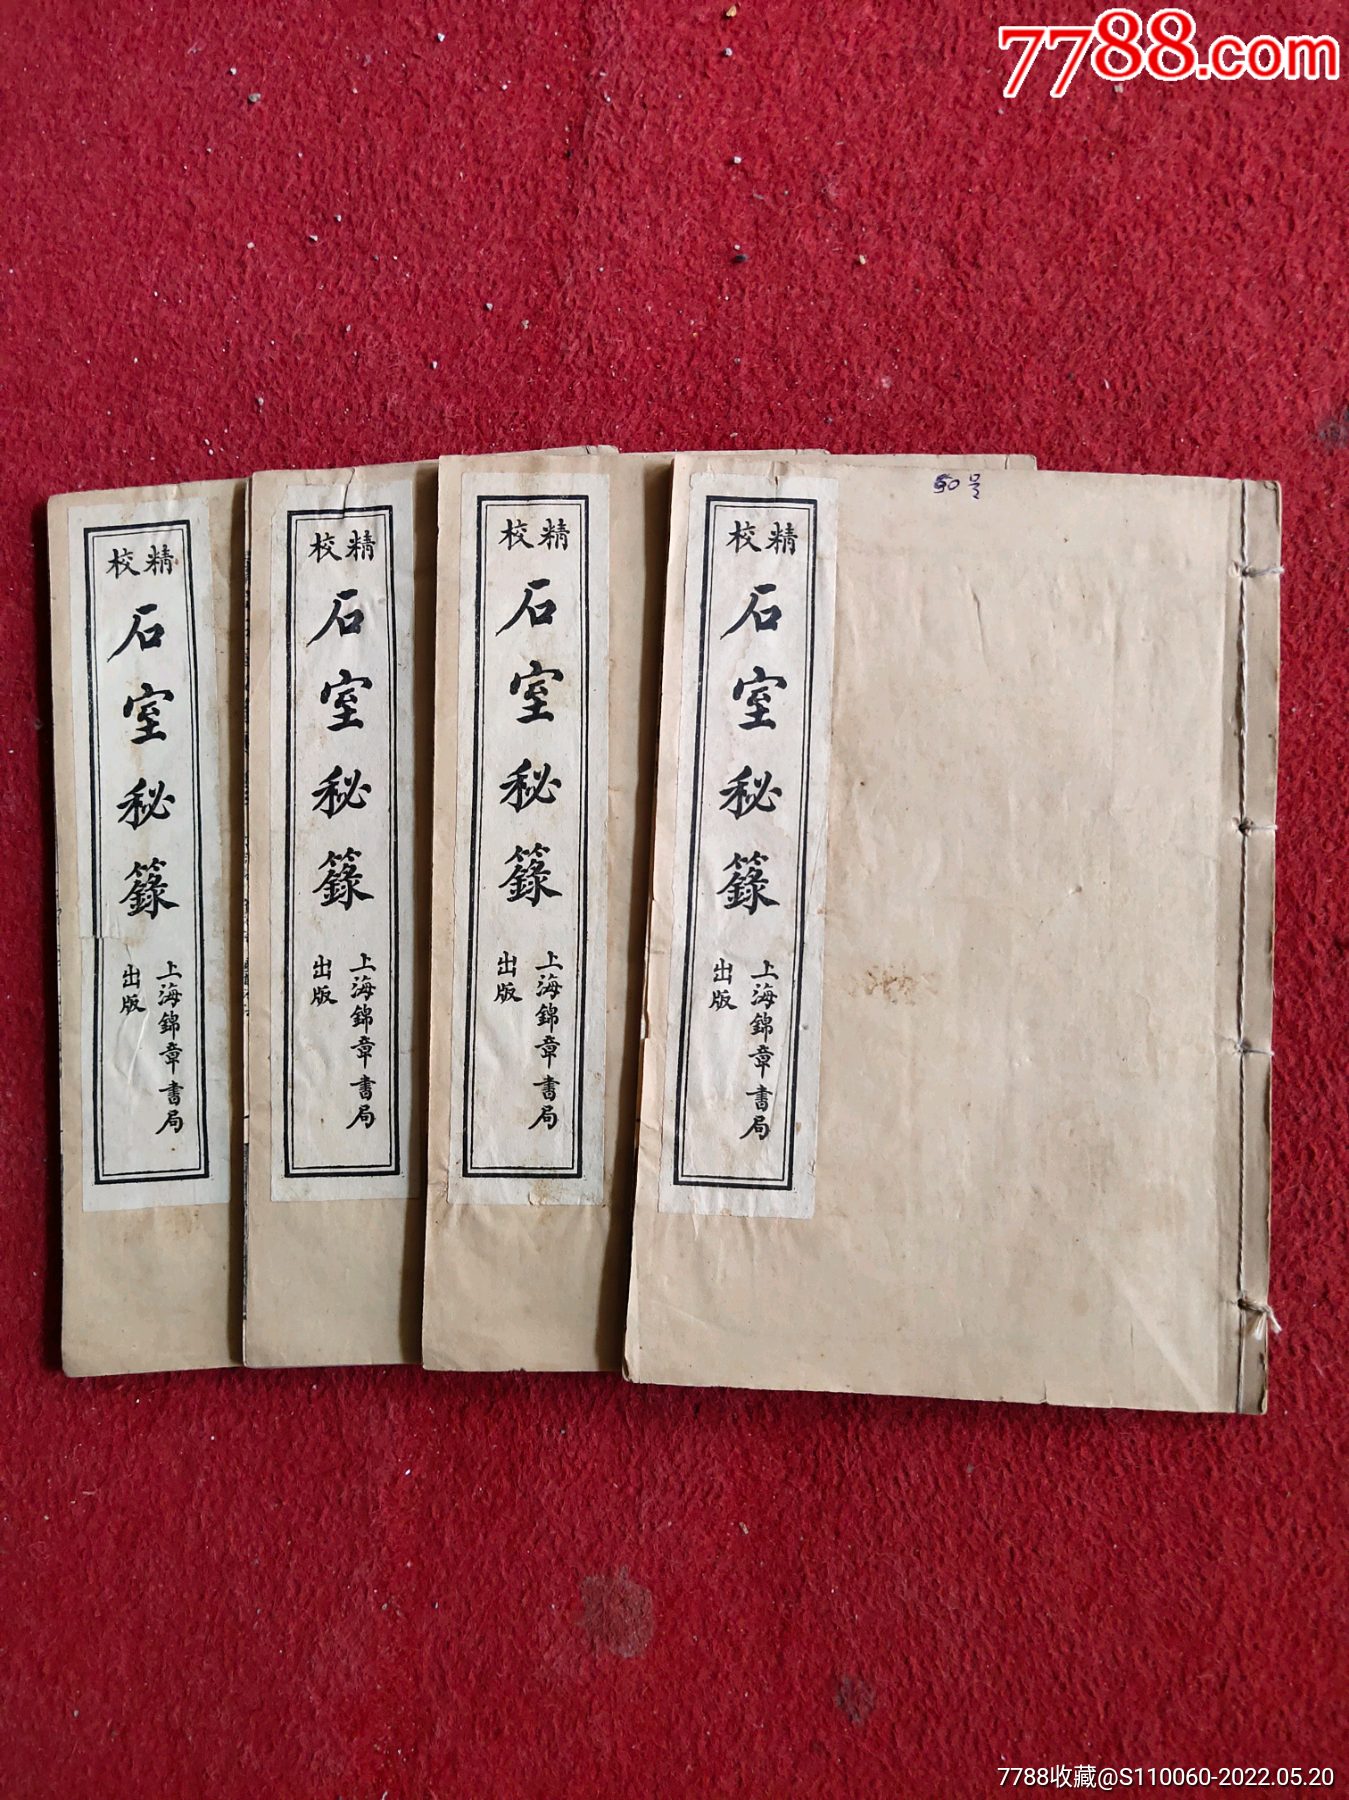 7788.com
50号
精校
石室秘籙
上海錦章書局
出版
精校
石室秘籙
上海錦章書局
出版
精校
石室秘籙
上海錦章書局
出版
精校
石室秘籙
上海錦章書局
出版
7788收藏@S110060-2022.05.20